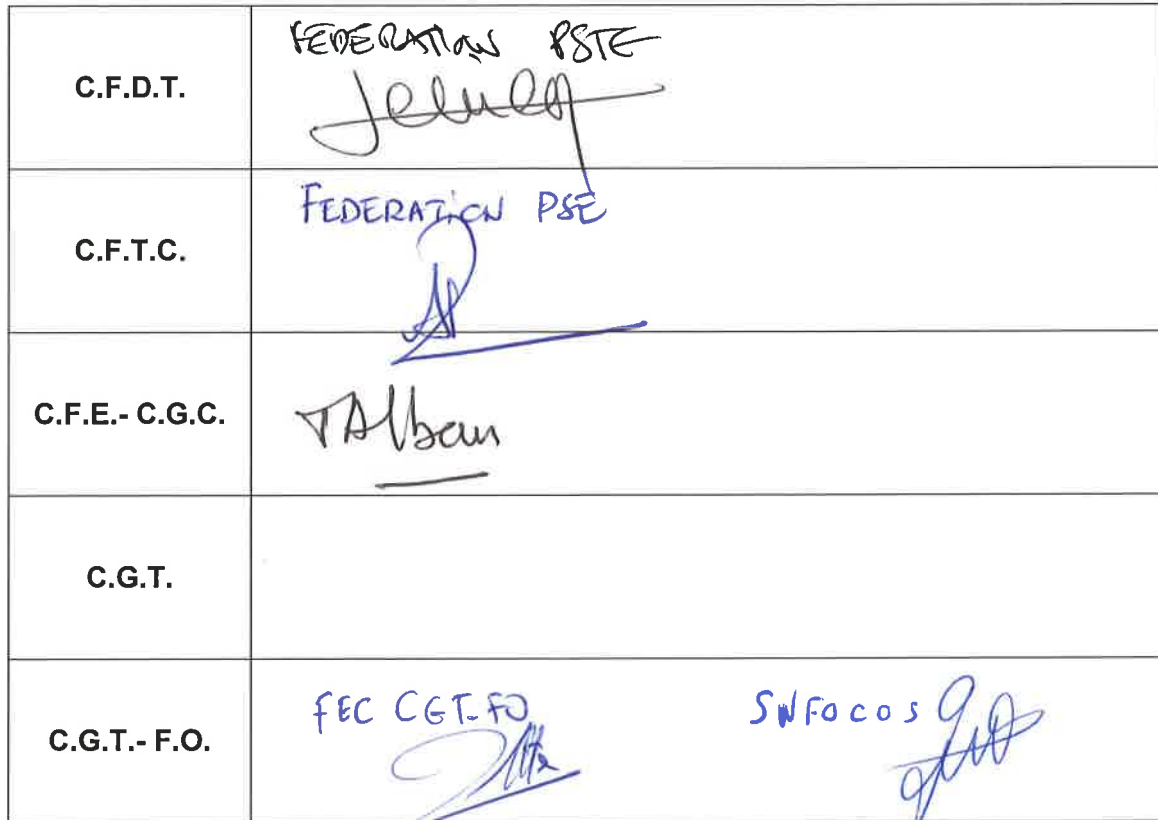 C.F.D.T.
FEDERATION PSTE
C.F.T.C.
FEDERATION PSE
C.F.E.- C.G.C.
TAlban
C.G.T.
C.G.T.- F.O.
FEC CGT-FO
SNFOCOS